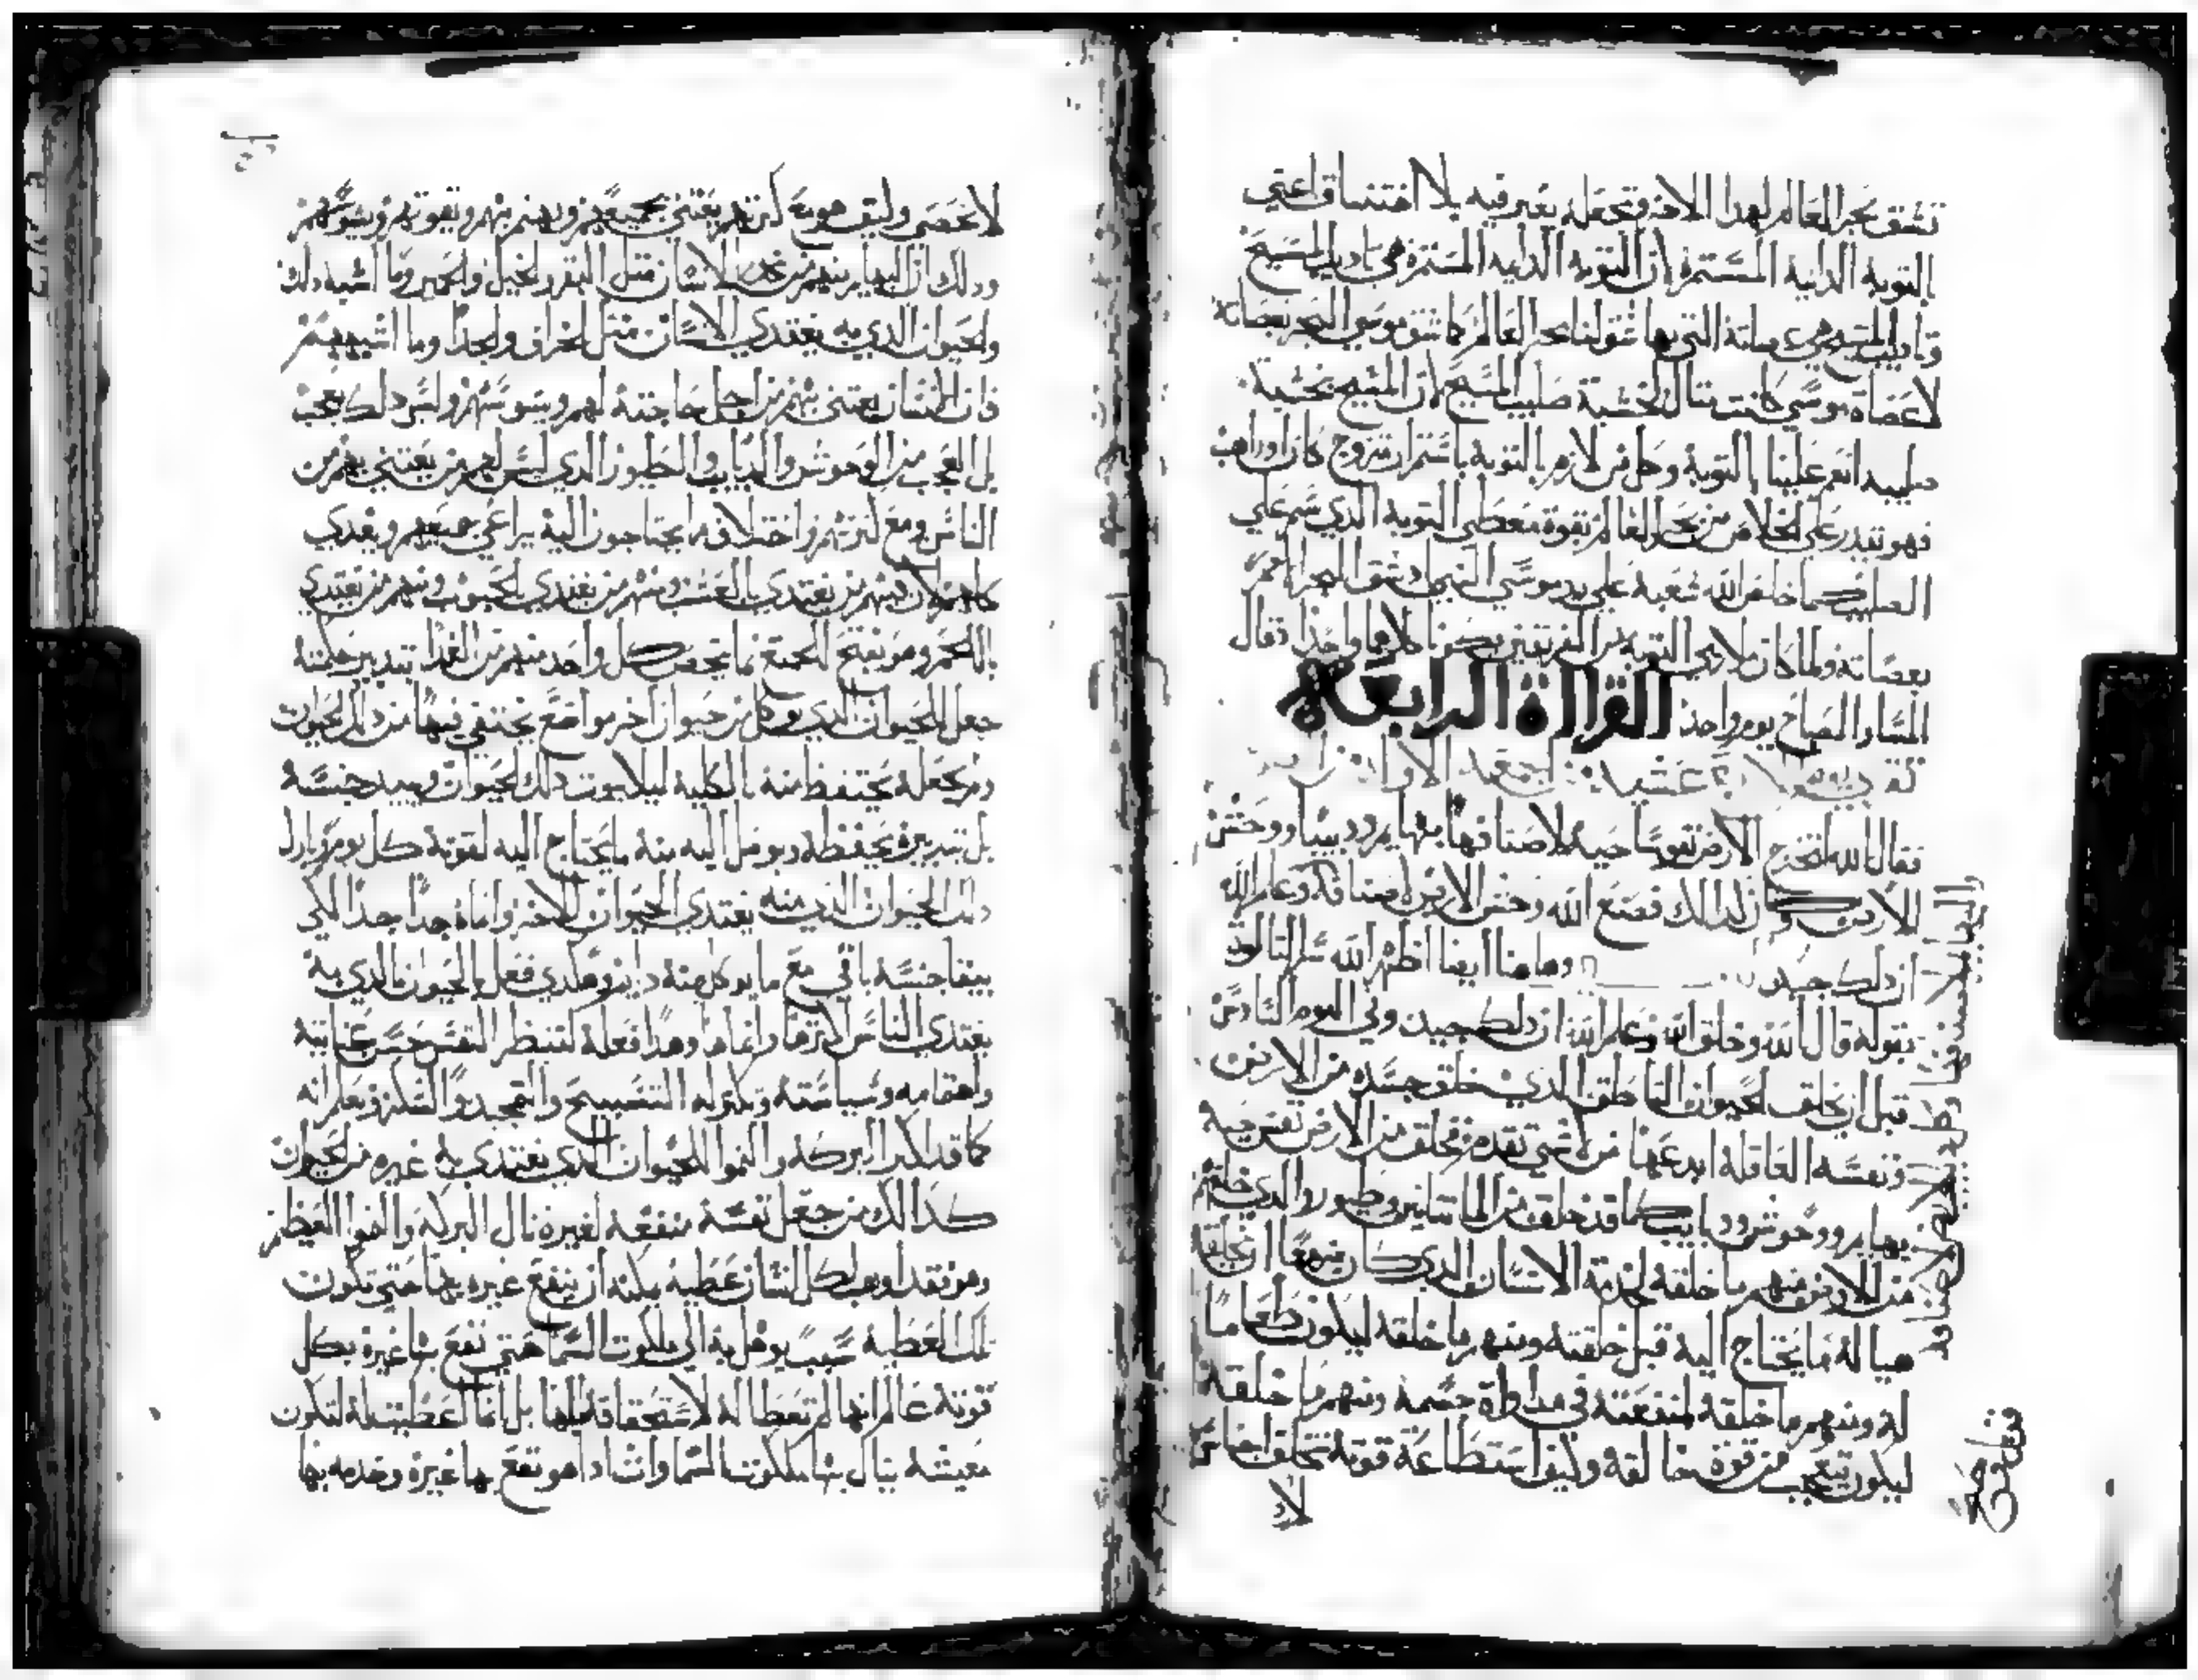 تشق بحر العالم لهدا الامة وتجعله يعبر فيه بلا اختناق اعني
التوبة الدايمة المستمرة لان التوبة الدايمة المستمرة هي تاديب المسيح
وتاديب المسيح هي عصاته التي بها شق لنا بحر العالم كما شق موسي البحر بعصاته
لا عصاة موسي كانت مثال لخشبة صليب المسيح لان المسيح بخشبة
صليبه انعم علينا بالتوبة وكل من لازم بالتوبة باستمرار متزوج كان او راهب
فهو يقدر علي الخلاص من بحر العالم بقوة معطي التوبة الدي سمر علي
الصليب كما خلص الله شعبه علي يد موسي النبي اد شق البحر الاحمر
بعصاته ولما كان ملايكي التوبة من الفريقين يكونا كلاهما واحدا فقال
المسا والصباح يوم واحد القراة الرابعة
فقال الله لتخرج الارض نفوسا حية لاصنافها بهايم ودبيبا ووحش
للارض وكان كدلك فصنع الله وحش الارض لاصنافه وعلم الله
ان دلك جيد وهاهنا ايضا اظهر الله سر الثالوث
بقوله قال الله وخلق الله وعلم الله ان دلك جيد وفي اليوم السادس
قبل ان يخلق الحيوان الناطق الدي خلق جسده من الارض
ونفسه العاقلة ابدعها من لا شي تقدم فخلق من الارض نفس حية
بهايم ووحوش ودبابيب كما قد خلق من الما تنانين وطيور والدي خلقهم
من الارض منهم ما خلقه لخدمة الانسان الدي كان مزمعا ان يخلقه
هيا له ما يحتاج اليه قبل خلقته ومنهم ما خلقه ليكون طعاما
له ومنهم ما خلقه لمنفعته في مداواة جسمه ومنهم ما خلقه
ليكون تتعجب من قوة خالقه وكيف استطاعة قوته تخلق اجناس
لا
لا تحصي وكيف هو مع كثرتهم يعتني بجميعهم ويهتم بهم ويقوتهم ويسوسهم
ودلك ان البهايم منهم من يخدم الانسان مثل البقر والخيل والحمير وما اشبه دلك
والحيوان الدي به يغتدي الانسان مثل الخراف والجدا وما اشبههم
فان الانسان يعتني بهم من اجل حاجته لهم ويسوسهم وليس دلك بعجب
بل العجب من الوحوش والدبايب والطيور الدي ليس لهم من يعتني بهم من
الناس ومع كثرتهم واختلاف ما يحتاجون اليه يراعي جميعهم ويغدي
كلهم لان منهم من يغتدي بالعشب ومنهم من يغتدي بالحبوب ومنهم من يغتدي
باللحم وهو يفتح للجميع بما يخص كل واحد منهم من الغدا بتدبير حكمته
جعل للحيوان الدي ياكل من حيوان اخر مواضع يختفي فيها من دلك الحيوان
ولم يجعله يحتفظ منه بالكلية ليلا يموت دلك الحيوان ويبيد جنسه
بل بتدبيره يحفظه ويوصل اليه منه ما يحتاج اليه لقوته كل يوم وبارك
دلك الحيوان الدي منه يغتدي الحيوان الاخر وانماه جدا جدا لكي
يبقا جنسه باقي مع ما يوكل منه دايم وهكدي فعل بالحيوان الدي به
يغتدي الناس اكثرها وانماها وهدا فعله لتنظر النفس حسن عنايته
واهتمامه وسياسته وتكثر له التسبيح والتمجيد والشكر وتعلم انه
كما قد اكثر البركة والنموا للحيوان الدي يغتدي به غيره من الحيوان
كدالك من جعل نفسه منفعة لغيره نال البركة والنموا العظيم
وهو فقد اوهب لكل انسان عطية يمكنه ان ينفع غيره بها حتي تكون
تلك العطية سبب يوصل به الي ملكوت السما متي نفع بها غيره بكل
قوته عالم انها لم تعطا له لاستحقاقه لها بل انما اعطيت له لتكون
معيشة ينال بها ملكوت السما وانت ادا هو نفع بها غيره وخدمه بها